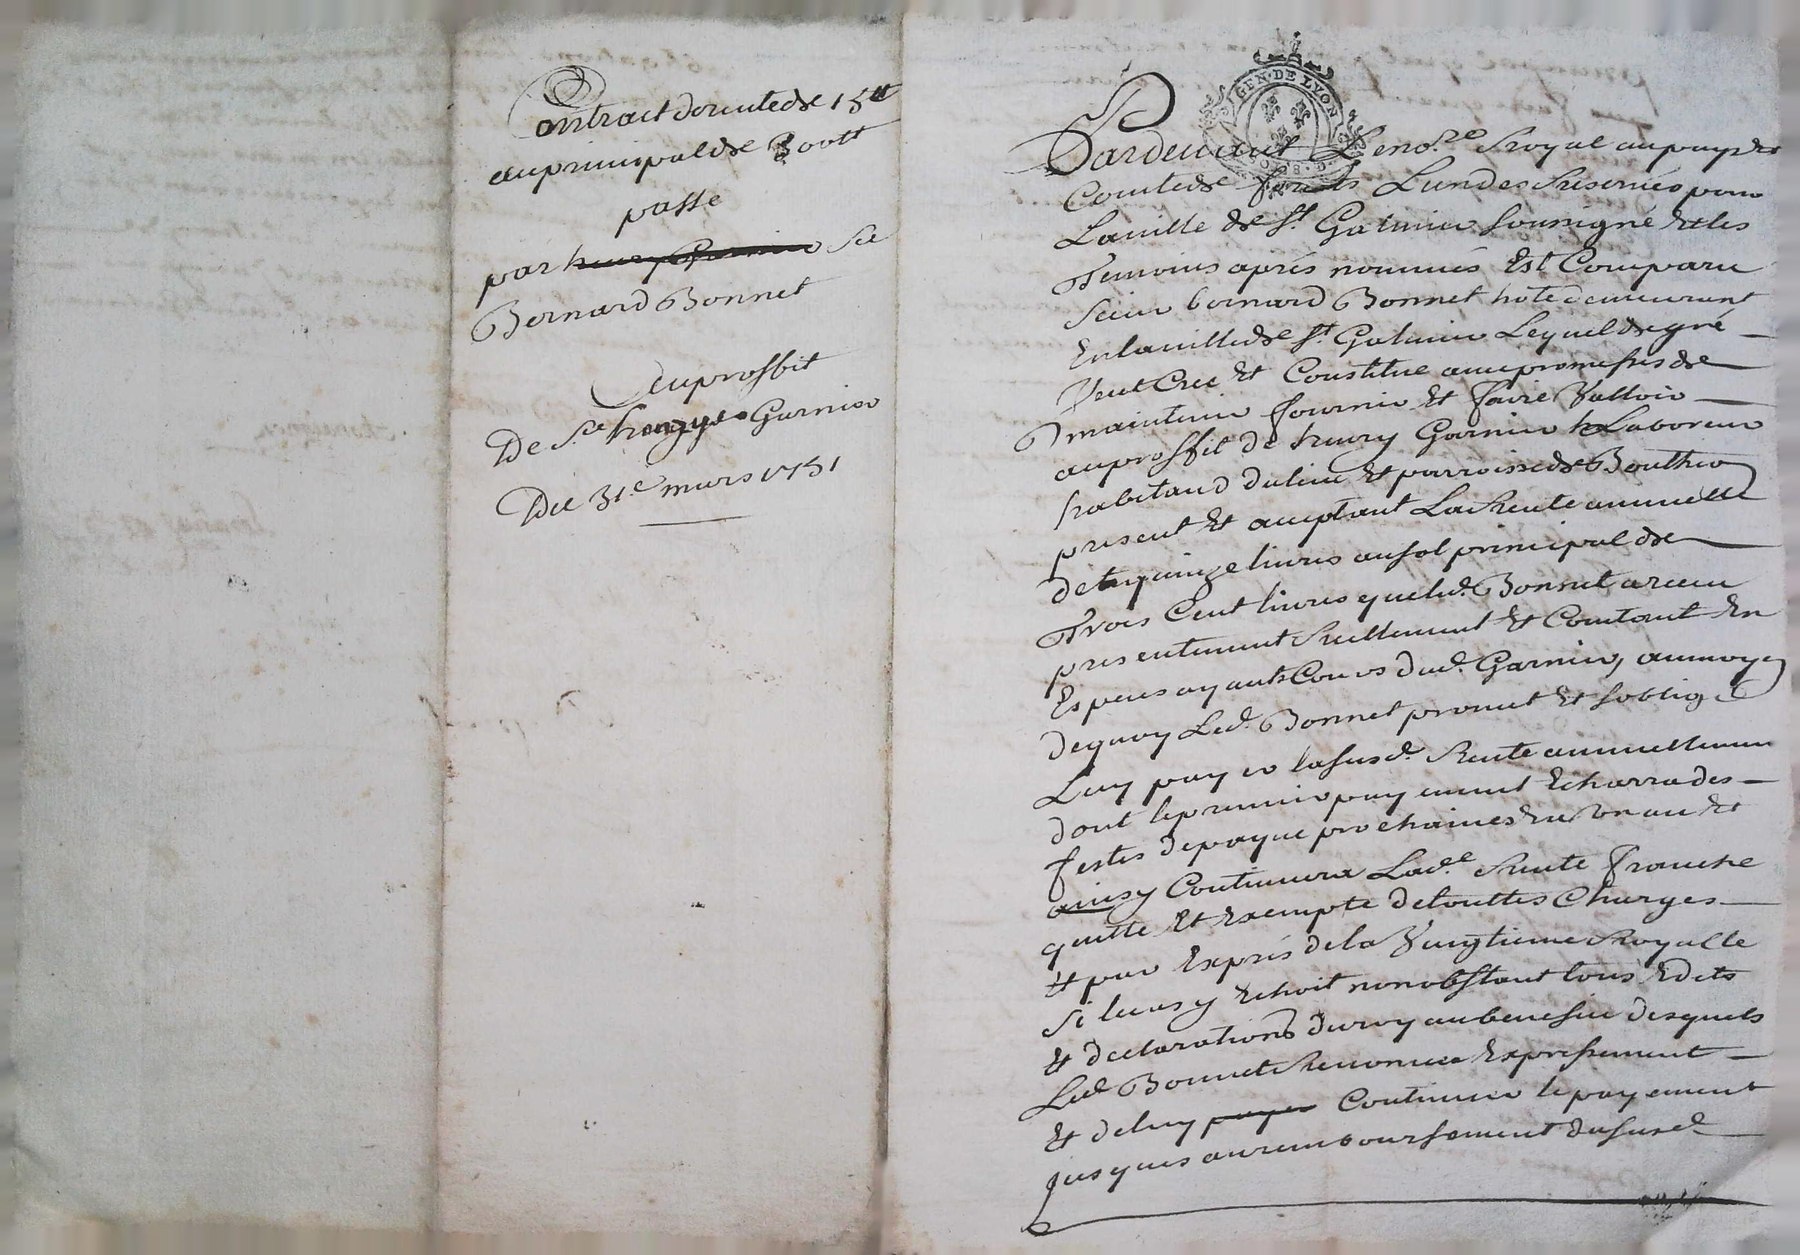 Contract de rente de 15 tt
au principal de 300 tt
passé
par henry Garnier Sr
Bernard Bonnet
Au proffit
De Sr henrye Garnier
Du 31e mars 1751
GEN. DE LYON
Pardevant Le nore Royal au pays et
Comté de forets Lun des Reservés pour
La ville de St. Galmier soussigné Et les
Temoins aprés nommés Est Comparu
Sieur bernard Bonnet hote demeurant
En la ville de St. Galmier Lequel de gré
Vend Cree Et Constitue avec promesses de
maintenir fournir Et faire Valloir
au proffit de henry Garnier Laboreur
habitand du lieu Et parroisse de Boutheo
present Et acceptant La Rente annuelle
de quinze livres au sol principal de
Trois Cent livres que led. Bonnet a receu
presentement Reellement Et Contant En
Especes ayants Cours dud. Garnier, au moyen
de quoy Led. Bonnet promet Et soblige
Luy payer la susd. Rente annuellemen
dont le premier payement Echerra des
festes de paque prochaines En Un an Et
ainsy Continuera Lade. Rente franche
quitte Et Exempte de touttes Charges
Et par Exprés de la Vingtieme Royalle
si le cas y Echoit nonobstant tous Edits
Et declarations du roy au benefice desquels
Led. Bonnet Renonce Expressement
Et de luy payer Continuer le payement
jusques au remboursement du susd.